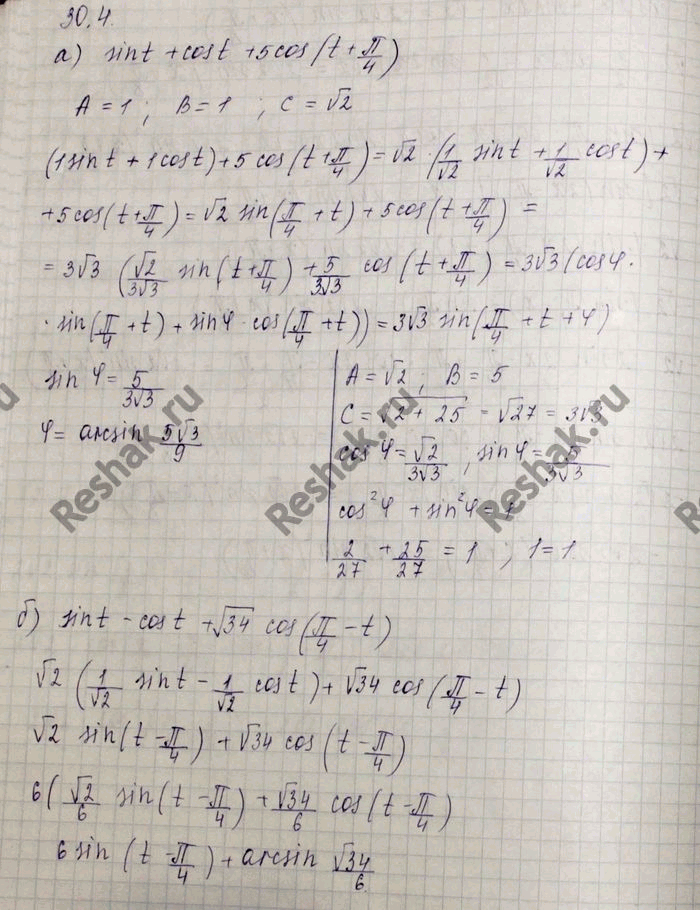 30.4.
а) sint + cost + 5cos(t + π/4)
A = 1 ; B = 1 ; C = √2
(1sint + 1cost) + 5cos(t + π/4) = √2 · (1/√2 sint + 1/√2 cost) +
+ 5cos(t + π/4) = √2 sin(π/4 + t) + 5cos(t + π/4) =
= 3√3 (√2/3√3 sin(t + π/4) + 5/3√3 cos(t + π/4) = 3√3 (cosφ ·
· sin(π/4 + t) + sinφ · cos(π/4 + t)) = 3√3 sin(π/4 + t + φ)
sin φ = 5/3√3
φ = arcsin 5√3/9
A = √2 ; B = 5
C = √2 + 25 = √27 = 3√3
cos φ = √2/3√3 , sin φ = 5/3√3
cos²φ + sin²φ = 1
2/27 + 25/27 = 1 ; 1 = 1
б) sint - cost + √34 cos(π/4 - t)
√2 (1/√2 sint - 1/√2 cost) + √34 cos(π/4 - t)
√2 sin(t - π/4) + √34 cos(t - π/4)
6(√2/6 sin(t - π/4) + √34/6 cos(t - π/4)
6 sin (t - π/4) + arcsin √34/6
Reshak.ru
Reshak.ru
Reshak.ru
Reshak.ru